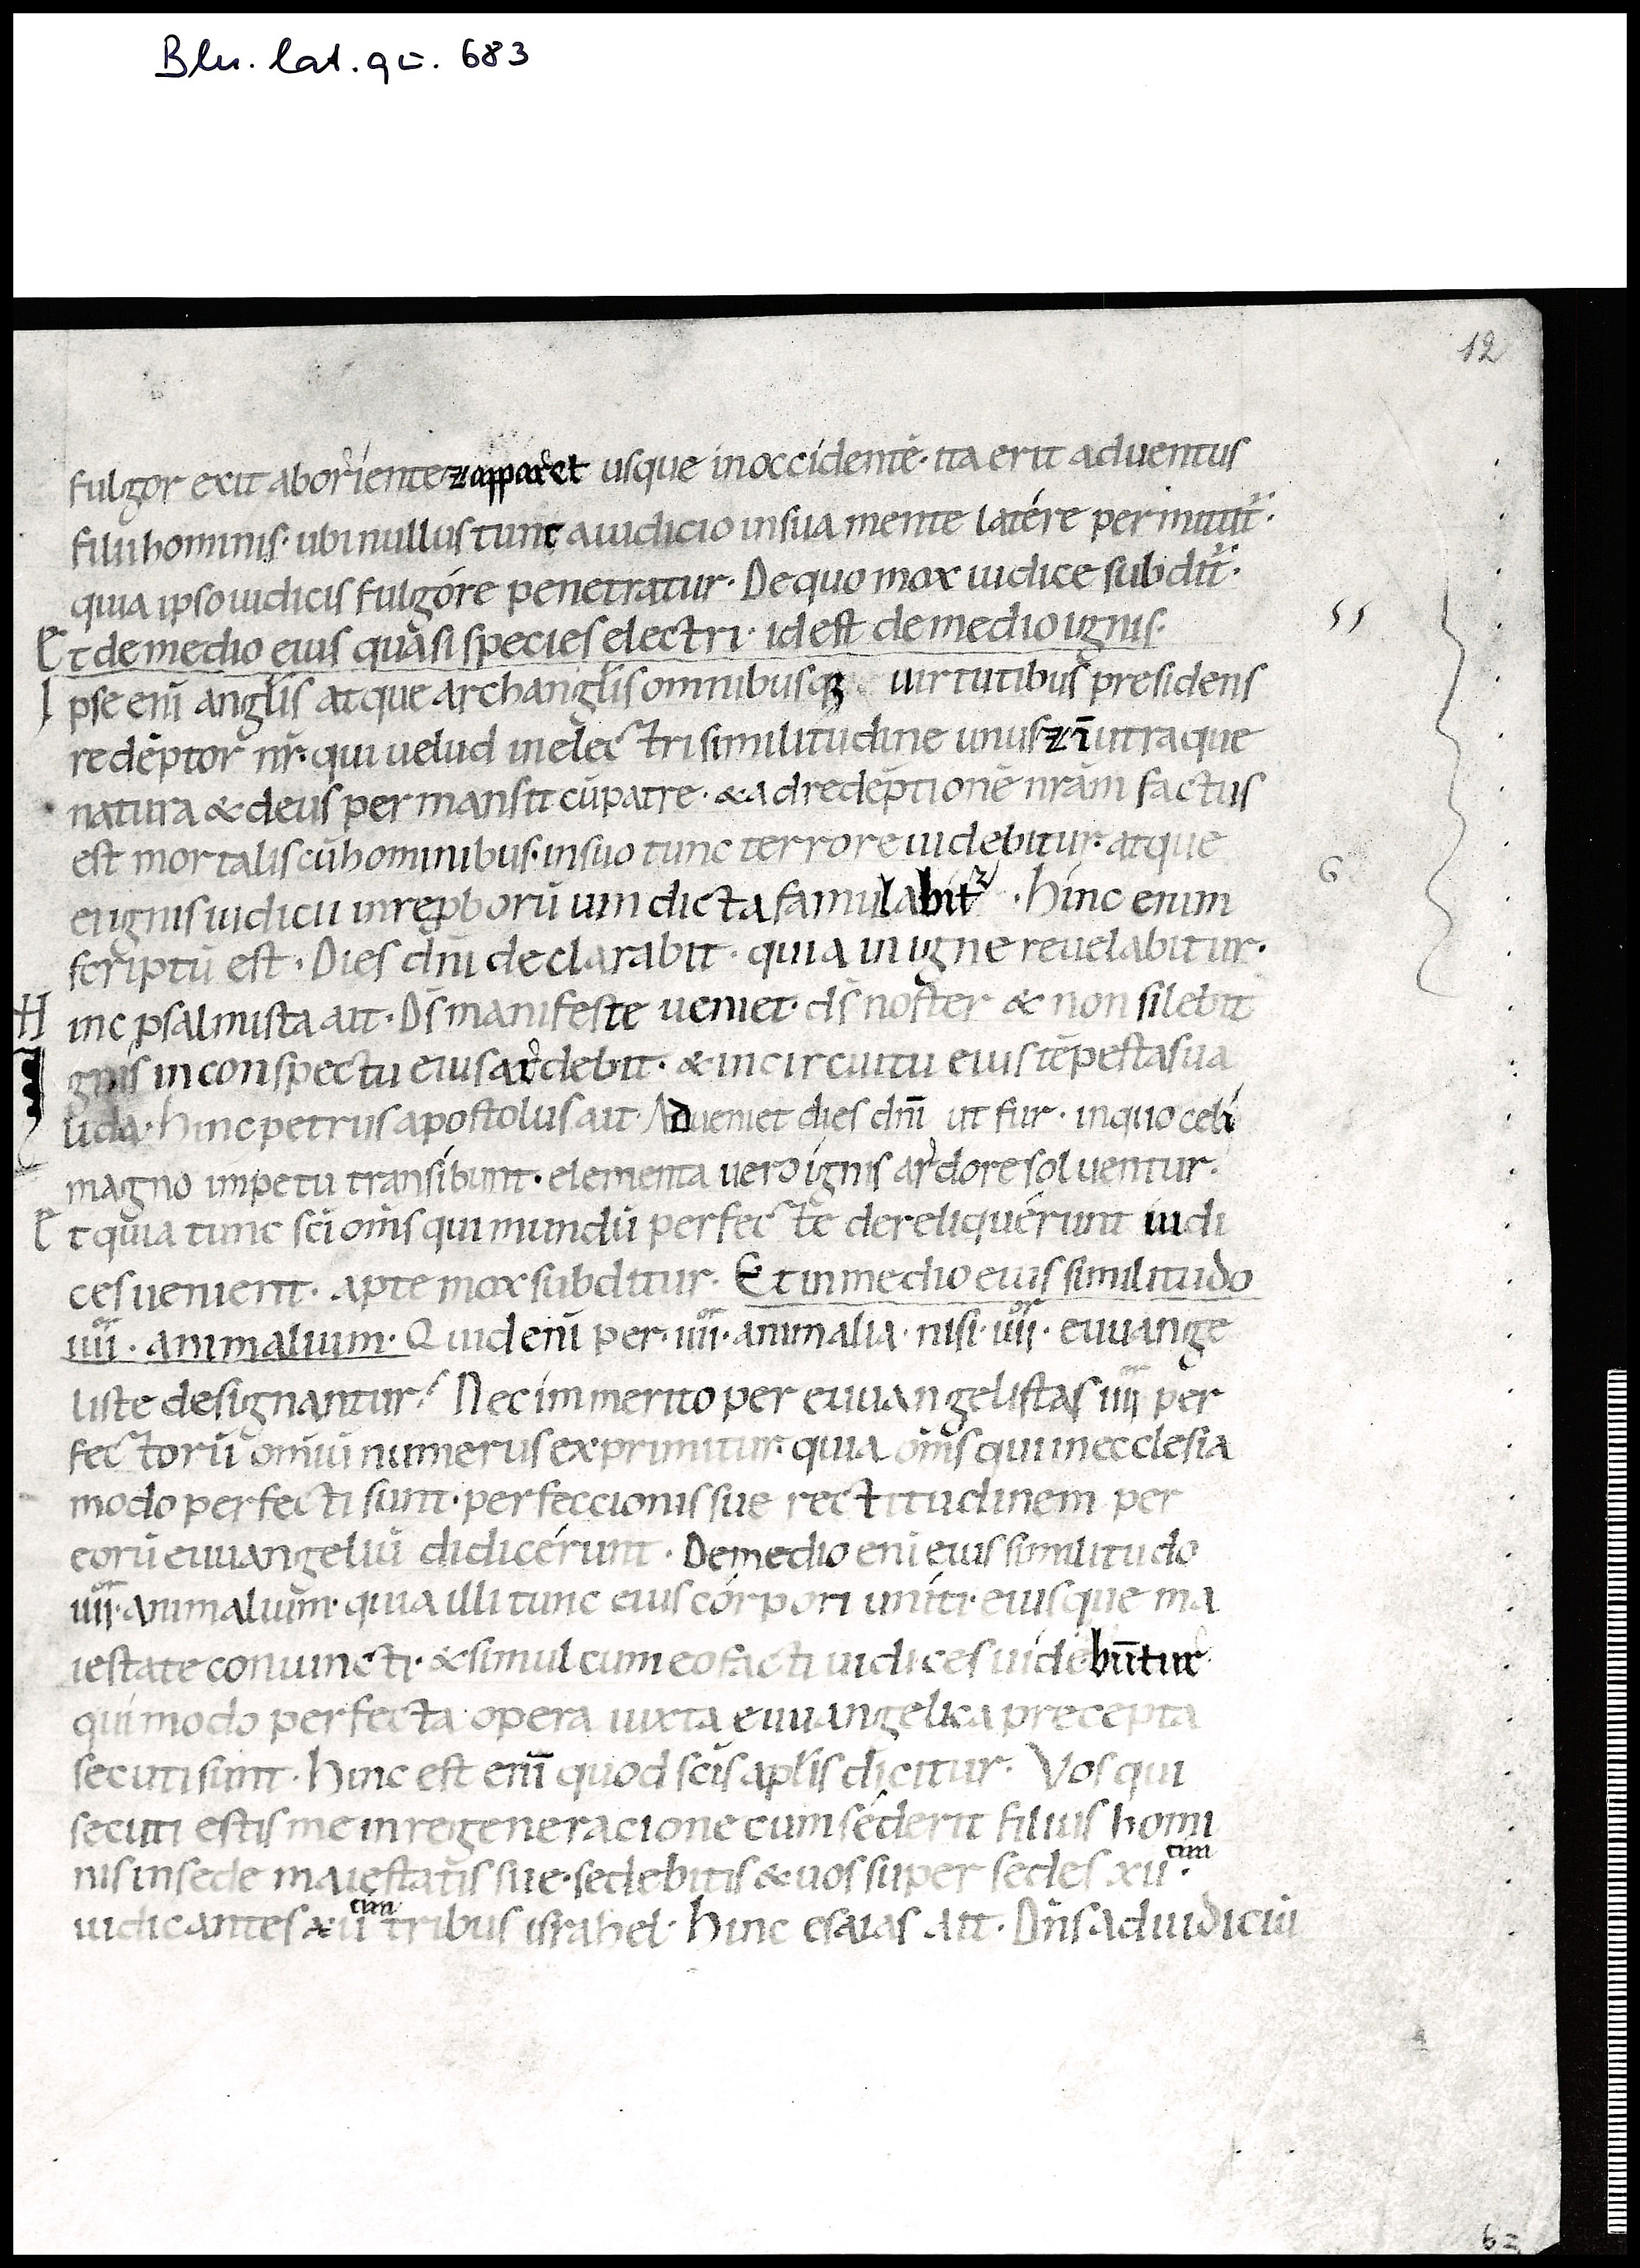 Bln. lat. qu. 683
12
fulgor exit aboriente ⁊ apparet usque inoccidentē· ita erit aduentus
filii hominis· ubi nullus tunc a iudicio in sua mente latére permittit᷑·
quia ipso iudicis fulgóre penetratur· De quo mox iudice subdit᷑·
Et de medio eius quasi species electri· id est de medio ignis·
Ipse enī angłis atque archangłis omnibusqꝫ uirtutibus presidens
redēptor nr̄· qui uelud in electri similitudine unus ⁊ ī utraque
natura & deus permansit cū patre· & ad redēptionē nrām factus
est mortalis cū hominibus· in suo tunc terrore uidebitur· atque
ei ignis iudicii in repborū uindicta famulabit᷑· hinc enim
scriptū est· Dies dn̄i declarabit· quia in igne reuelabitur·
Hinc psalmista ait· Dś manifeste ueniet· dś noster & non silebit
Ignis in conspectu eius ardebit· & in circuitu eius tēpestas ua
lida· hinc petrus apostolus ait· Adueniet dies dn̄i ut fur· in quo celi
magno impetu transibunt· elementa uero ignis ardore soluentur·
Et quia tunc sc̄i om̄s qui mundū perfecte dereliquérunt iudi
ces uenient· apte mox subditur· Et in medio eius similitudo
iiiiᵒʳ· animalium· Quid enī per· iiiiᵒʳ· animalia· nisi· iiiiᵒʳ· euuange
liste designantur? Nec immerito per euuangelistas iiiiᵒʳ per
fectorū om̄iū numerus exprimitur· quia om̄s qui in ecclesia
modo perfecti sunt· perfeccionis sue rectitudinem per
eorū euuangeliū didicérunt· De medio enī eius similitudo
iiiiᵒʳ· animalium· quia illi tunc eius córpori uniti· eiusque ma
iestate coniuncti· & simul cum eo facti iudices uidebūtur·
qui modo perfecta opera iuxta euuangelica precepta
secuti sunt· hinc est enī quod sc̄is apłis dicitur· Vos qui
secuti estis me in regeneracione cum séderit filius homi
nis in sede maiestatis sue· sedebitis & uos super sedes xiiᶜⁱᵐ·
iudicantes xiiᶜⁱᵐ tribus israhel· hinc esaias ait· Dn̄s ad iudiciū